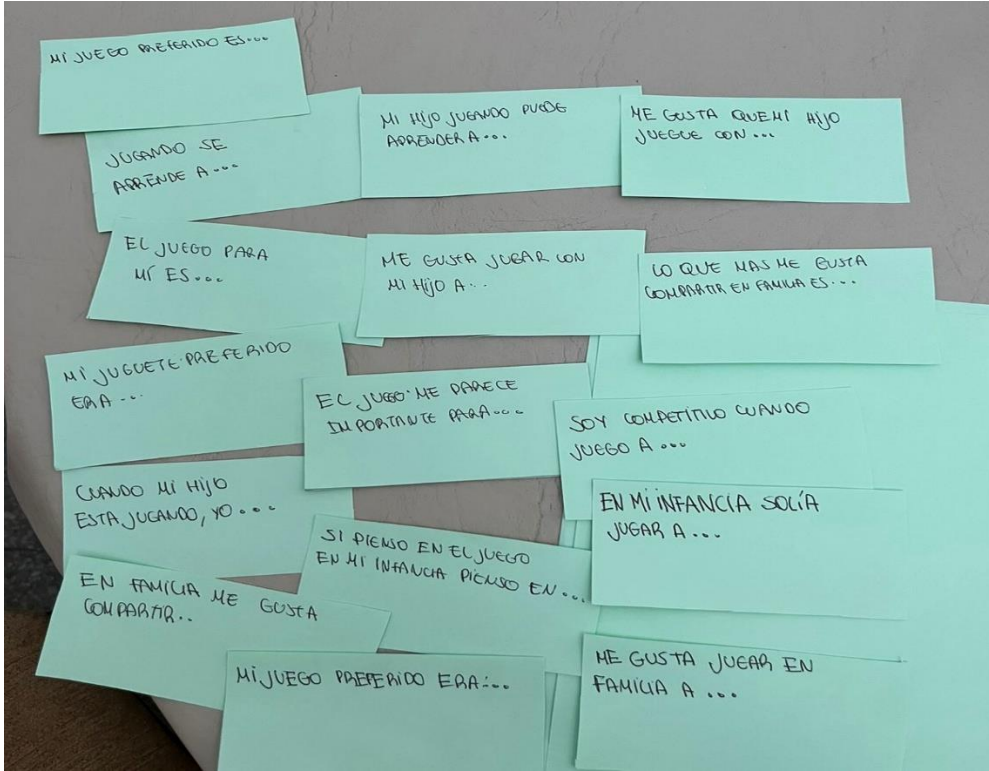 MI JUEGO PREFERIDO ES...
JUGANDO SE
APRENDE A...
MI HIJO JUGANDO PUEDE
APRENDER A...
ME GUSTA QUE MI HIJO
JUEGUE CON...
EL JUEGO PARA
MÍ ES...
ME GUSTA JUGAR CON
MI HIJO A...
LO QUE MAS ME GUSTA
COMPARTIR EN FAMILIA ES...
MI JUGUETE PREFERIDO
ERA...
EL JUEGO ME PARECE
IMPORTANTE PARA...
SOY COMPETITIVO CUANDO
JUEGO A...
CUANDO MI HIJO
ESTA JUGANDO, YO...
SI PIENSO EN EL JUEGO
EN MI INFANCIA PIENSO EN...
EN MI INFANCIA SOLÍA
JUGAR A...
EN FAMILIA ME GUSTA
COMPARTIR..
MI JUEGO PREFERIDO ERA:..
ME GUSTA JUGAR EN
FAMILIA A...